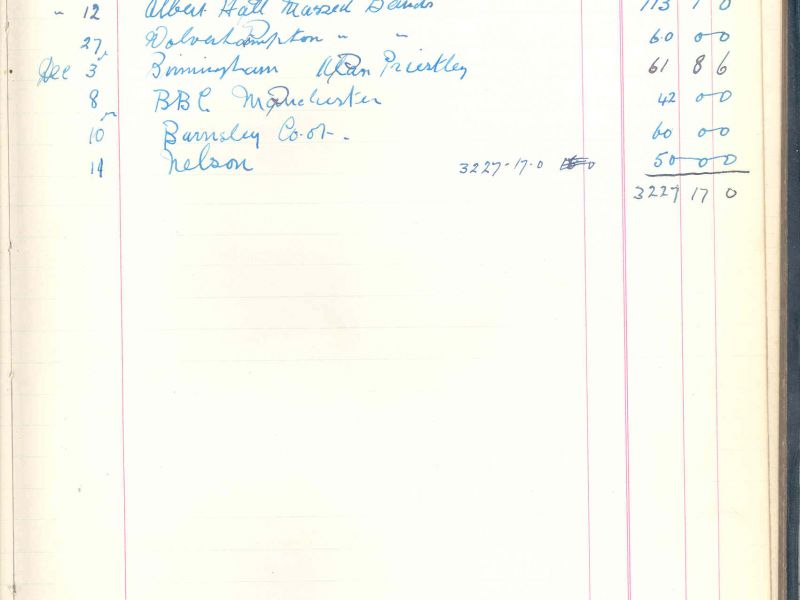 " 12 Albert Hall Massed Bands 113 1 0
27 Wolverhampton " " 60 0 0
Dec 3 Birmingham Alan Priestley 61 8 6
8 BBC Manchester 42 0 0
10 Barnsley Co-op. 60 0 0
14 Nelson 3227-17-0 0 50 0 0
3227 17 0